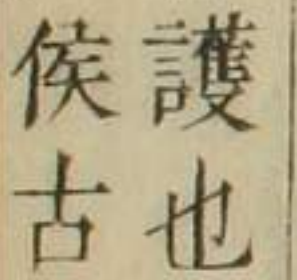 護也
侯古